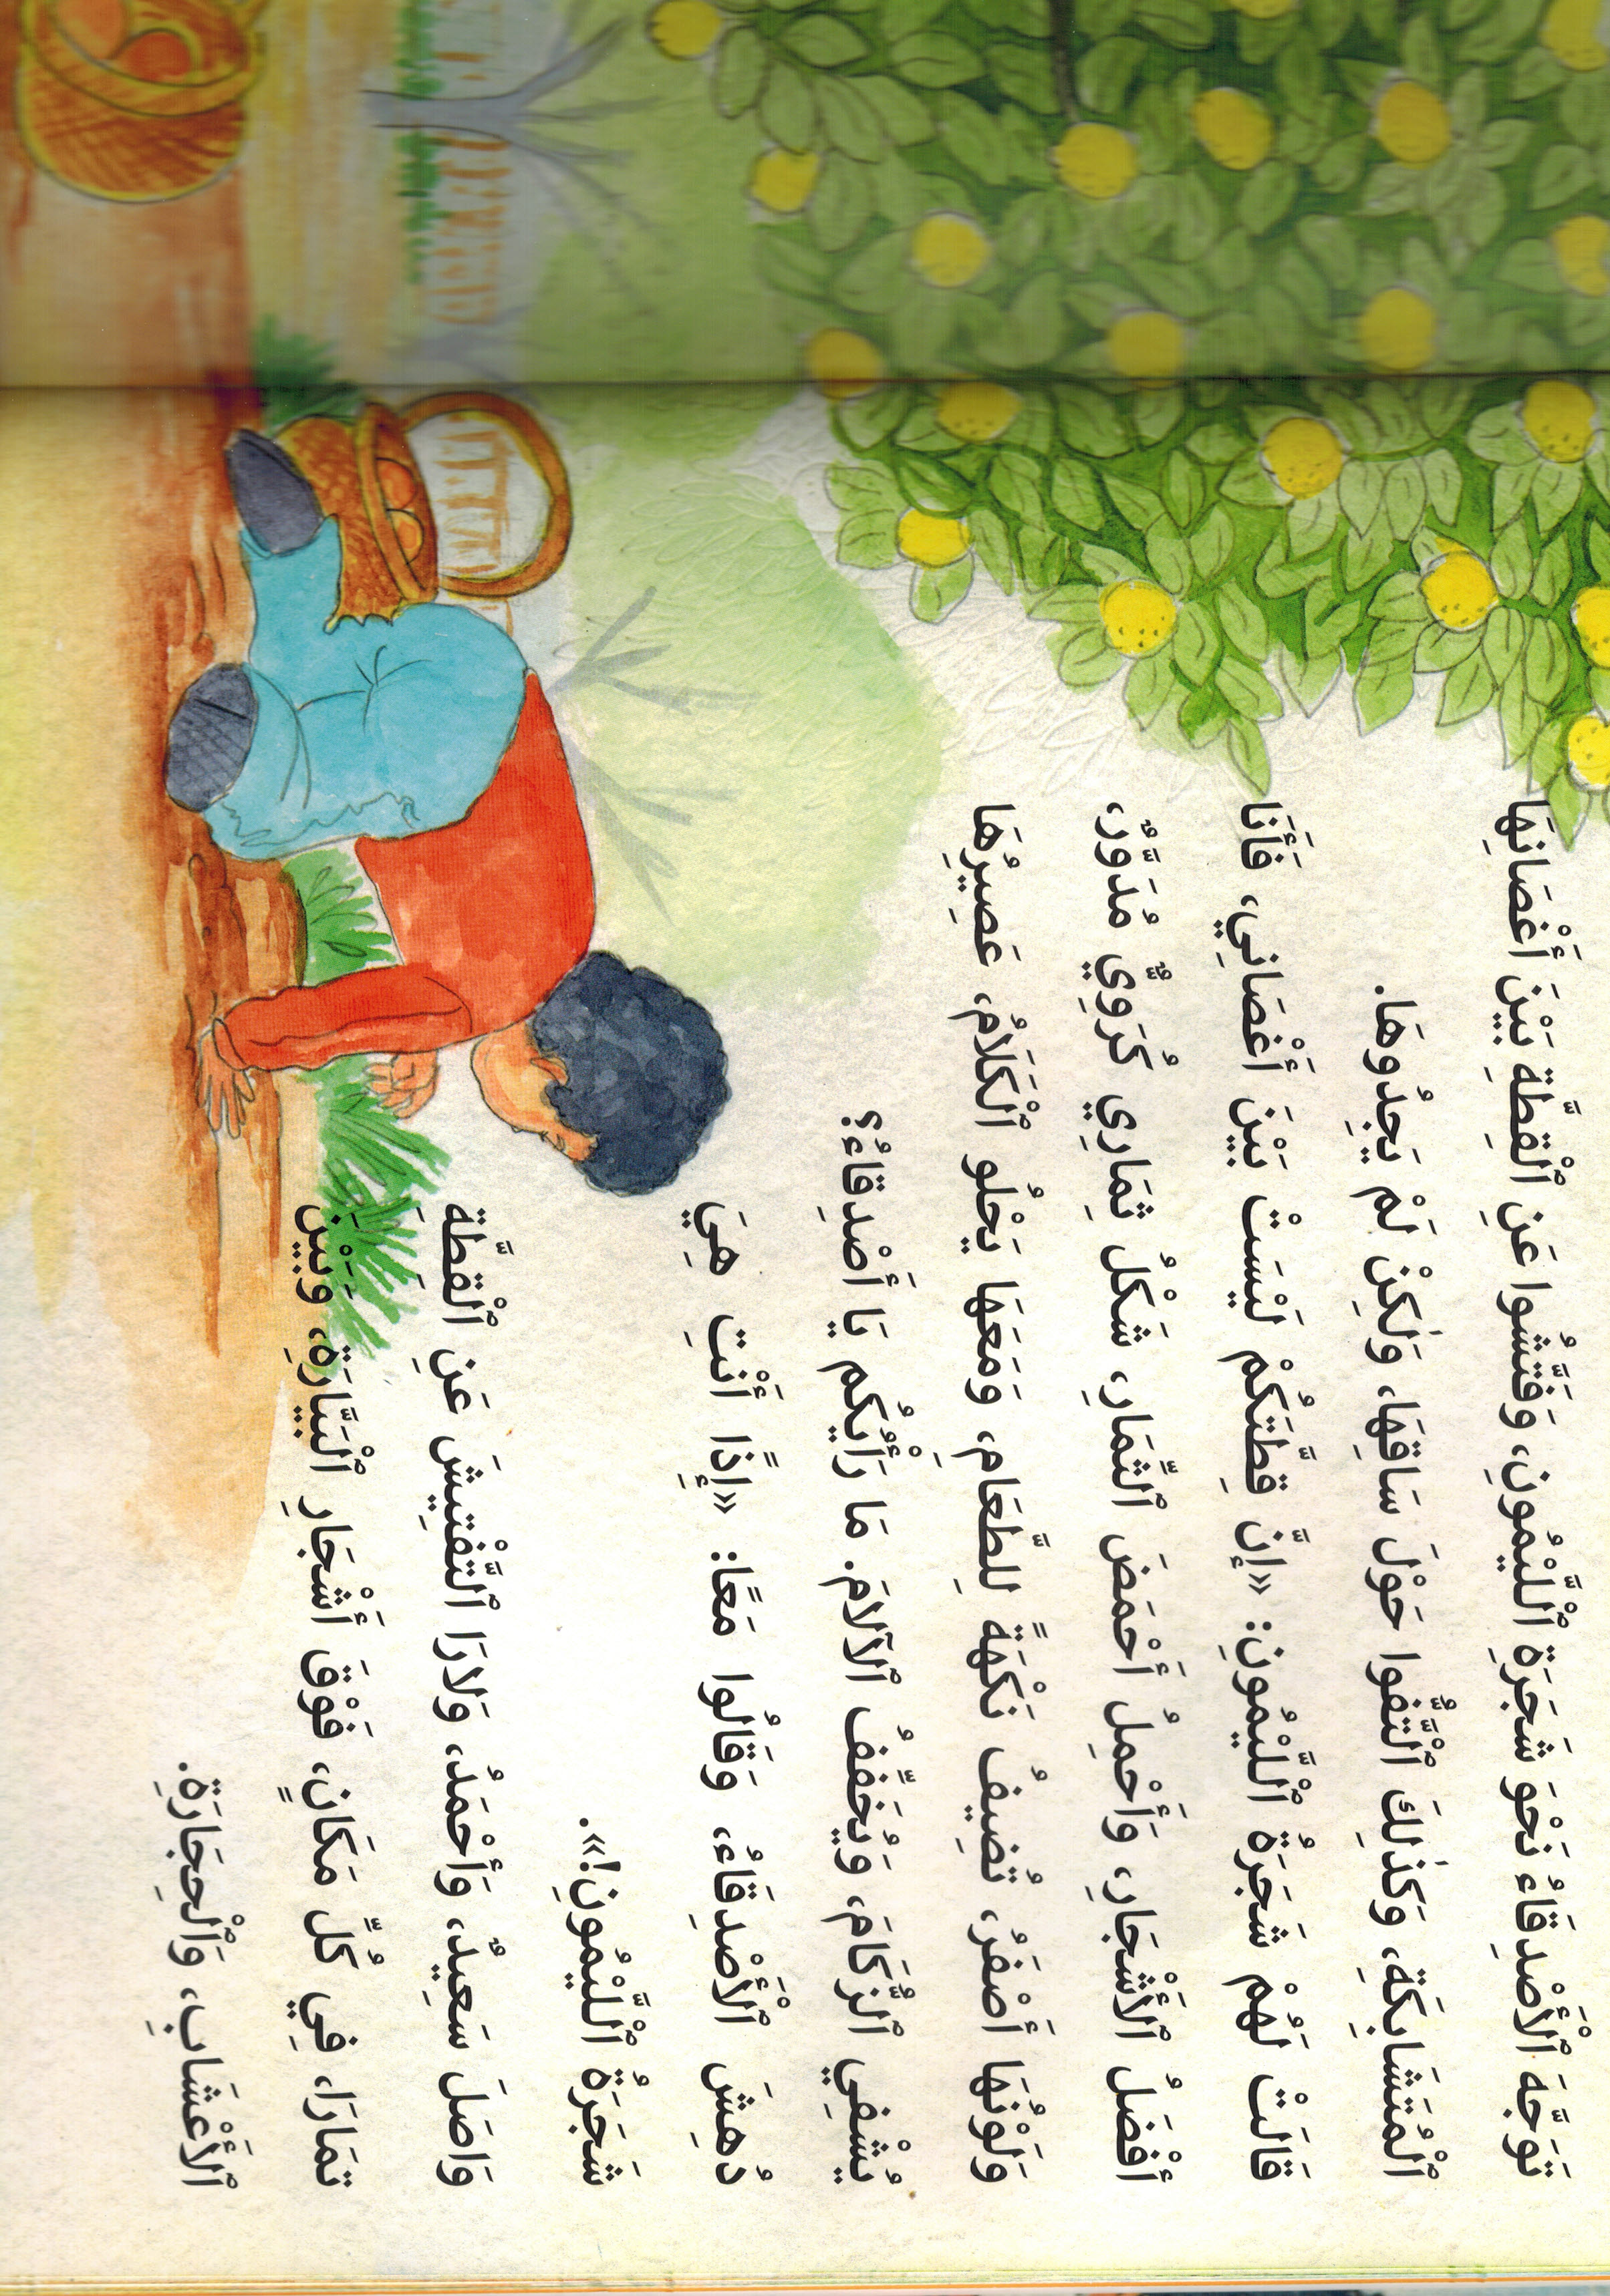 تَوَجَّهَ ٱلْأَصْدِقَاءُ نَحْوَ شَجَرَةِ ٱللَّيْمُونِ، وَفَتَّشُوا عَنِ ٱلْقِطَّةِ بَيْنَ أَغْصَانِهَا
ٱلْمُتَشَابِكَةِ، وَكَذٰلِكَ ٱلْتَّفُّوا حَوْلَ سَاقِهَا، وَلٰكِنْ لَمْ يَجِدُوهَا.
قَالَتْ لَهُمْ شَجَرَةُ ٱللَّيْمُونِ: «إِنَّ قِطَّتَكُمْ لَيْسَتْ بَيْنَ أَغْصَانِي، فَأَنَا
أَفْضَلُ ٱلْأَشْجَارِ، وَأَحْمِلُ أَحْمَضَ ٱلثِّمَارِ، شَكْلُ ثِمَارِي كُرَوِيٌّ مُدَوَّرٌ،
وَلَوْنُهَا أَصْفَرُ، تُضِيفُ نَكْهَةً لِلطَّعَامِ، وَمَعَهَا يَحْلُو ٱلْكَلَامُ، عَصِيرُهَا
يُشْفِي ٱلزُّكَامَ، وَيُخَفِّفُ ٱلْآلَامَ. مَا رَأْيُكُم يَا أَصْدِقَاءُ؟
دُهِشَ ٱلْأَصْدِقَاءُ، وَقَالُوا مَعًا: «إِذًا أَنْتِ هِيَ
شَجَرَةُ ٱللَّيْمُونِ!».
وَاصَلَ سَعِيدٌ، وَأَحْمَدُ، وَلَارَا ٱلتَّفْتِيشَ عَنِ ٱلْقِطَّةِ
تمَارَا، فِي كُلِّ مَكَانٍ، فَوْقَ أَشْجَارِ ٱلْبَيَّارَةِ، وَبَيْنَ
ٱلْأَعْشَابِ، وَٱلْحِجَارَةِ.